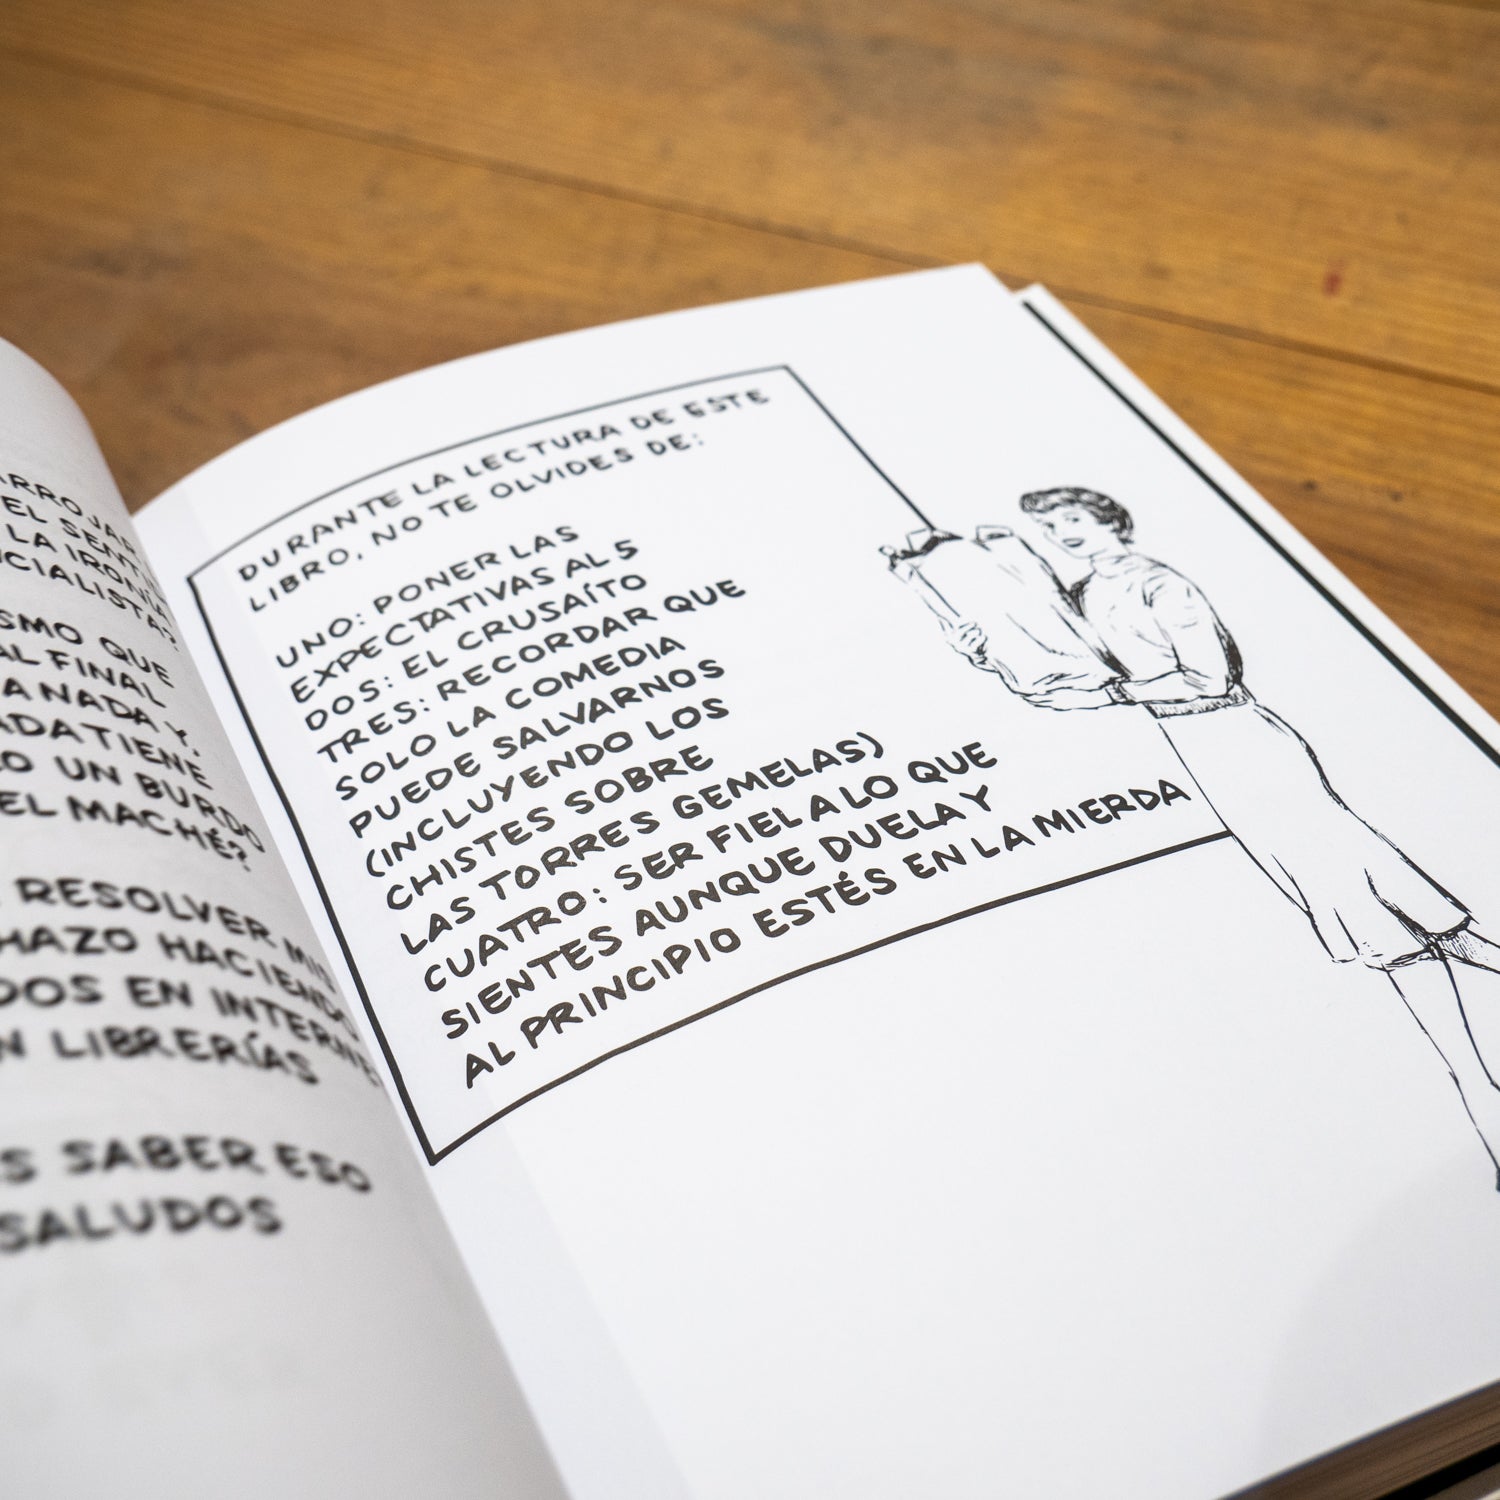 EL SENT
LA IRONÍA
SMO QUE
AL FINAL
A NADA Y,
ADA TIENE
UN BURDO
EL MACHÉ?
RESOLVER MIS
HAZO HACIENDO
DOS EN INTERNE
N LIBRERÍAS
S SABER ESO
SALUDOS
DURANTE LA LECTURA DE ESTE
LIBRO, NO TE OLVIDES DE:
UNO: PONER LAS
EXPECTATIVAS AL 5
DOS: EL CRUSAÍTO
TRES: RECORDAR QUE
SOLO LA COMEDIA
PUEDE SALVARNOS
(INCLUYENDO LOS
CHISTES SOBRE
LAS TORRES GEMELAS)
CUATRO: SER FIEL A LO QUE
SIENTES AUNQUE DUELA Y
AL PRINCIPIO ESTÉS EN LA MIERDA